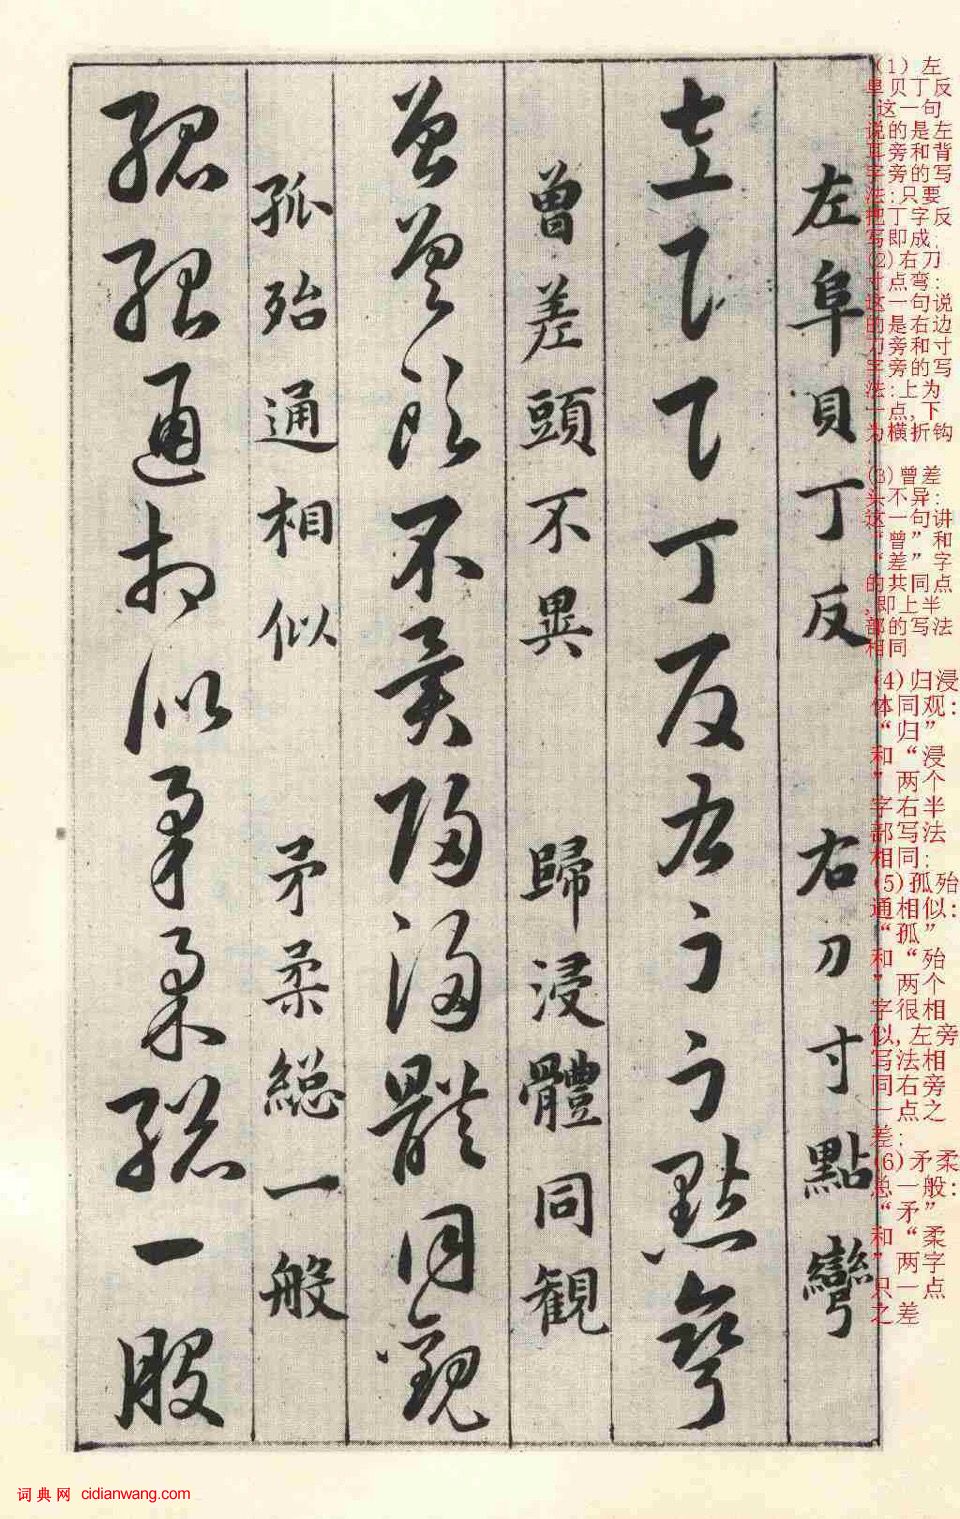 左阜貝丁反 右刀寸點彎
左阜貝丁反右刀寸點彎
曾差頭不異 歸浸體同観
曾差頭不異歸浸體同觀
孤殆通相似 矛柔總一般
孤殆通相似矛柔總一般
(1)左
阜贝丁反
:这一句
说的是左
耳旁和背
字旁的写
法:只要
把丁字反
写即成;
(2)右刀
寸点弯:
这一句说
的是右边
刀旁和寸
字旁的写
法:上为
一点,下
为横折钩
(3)曾差
头不异:
这一句讲
“曾”和
“差”字
的共同点
,即上半
部的写法
相同
(4)归浸
体同观:
“归”
和“浸
”两个
字右半
部写法
相同;
(5)孤殆
通相似:
“孤”
和“殆
”两个
字很相
似,左旁
写法相
同右旁
一点之
差;
(6)矛柔
总一般:
“矛”
和“柔
”两字
只一点
之差
词典网 cidianwang.com